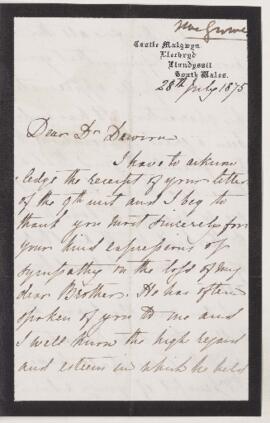 Castle Malgwyn
Llechryd
Llandyssil
South Wales.
28th July 1875
Dear Dr
I have to acknow
ledge the receipt of your letter
of the 9th inst and I beg to
thank you most sincerely for
your kind expressions of
sympathy on the loss of my
dear Brother. He has often
spoken of you to me and
I well know the high regard
and esteem in which he held